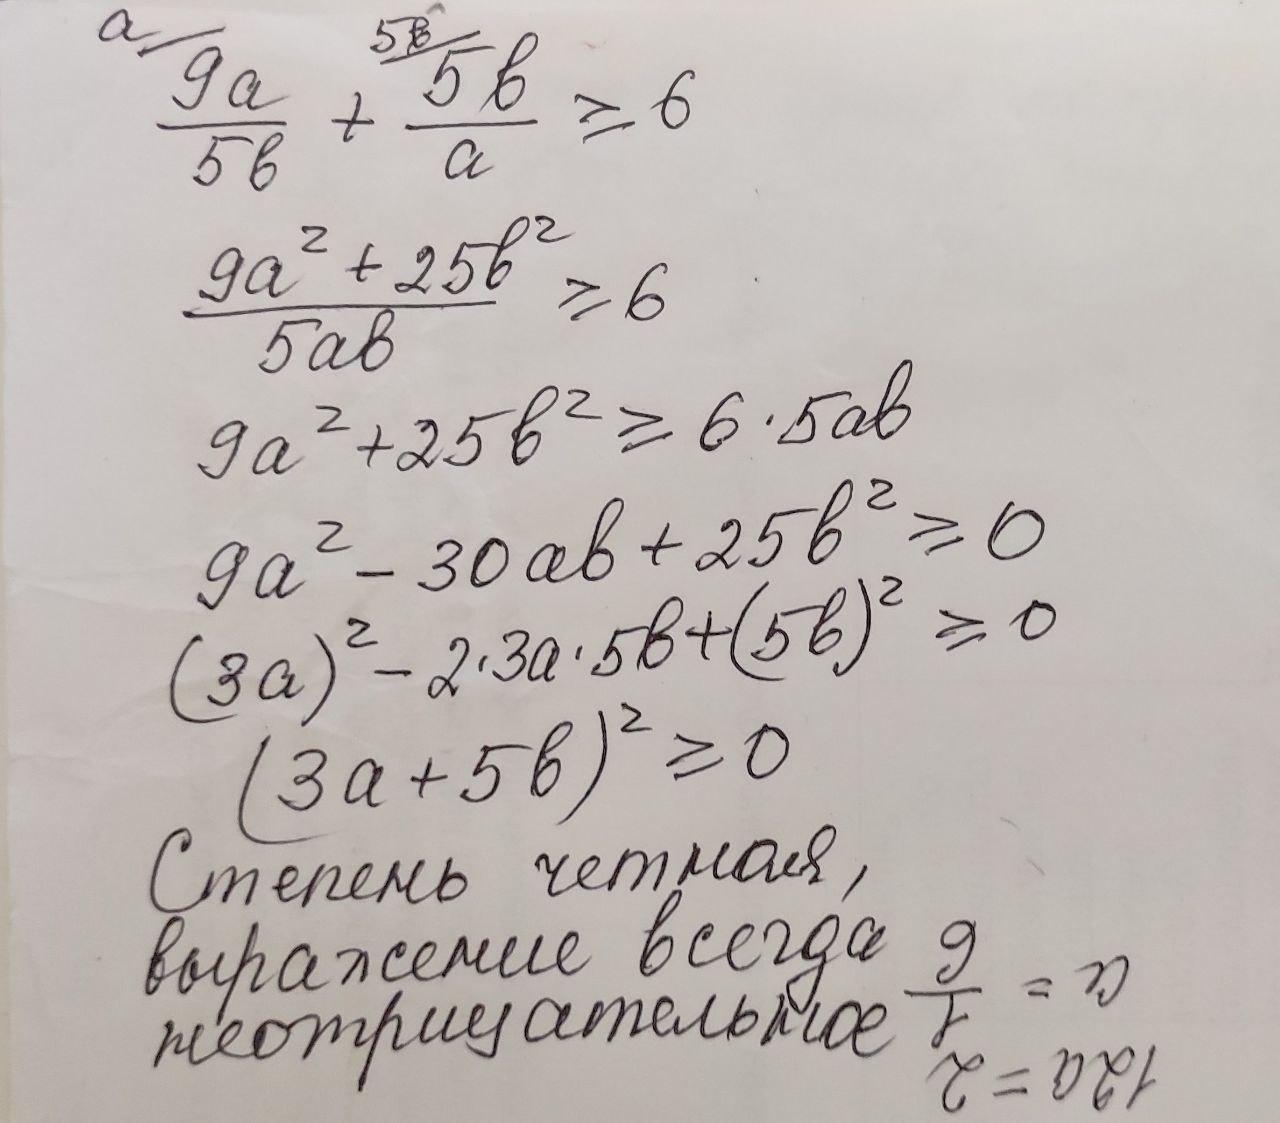 a/ 9a/5b + 5b/ 5b/a ≥ 6
9a² + 25b² / 5ab ≥ 6
9a² + 25b² ≥ 6 · 5ab
9a² - 30ab + 25b² ≥ 0
(3a)² - 2·3a·5b + (5b)² ≥ 0
(3a + 5b)² ≥ 0
Степень четная,
выражение всегда
неотрицательное
12a = 2
a = 1/6